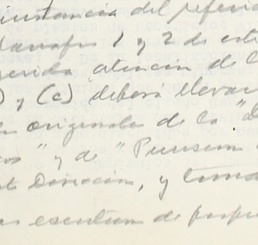 instancia del referid
párrafos 1 y 2 de est
querida atención de l
) y (c) deberá llevar
originales de la "D
os" y de "Pursem
Donación, y toma
escritura de